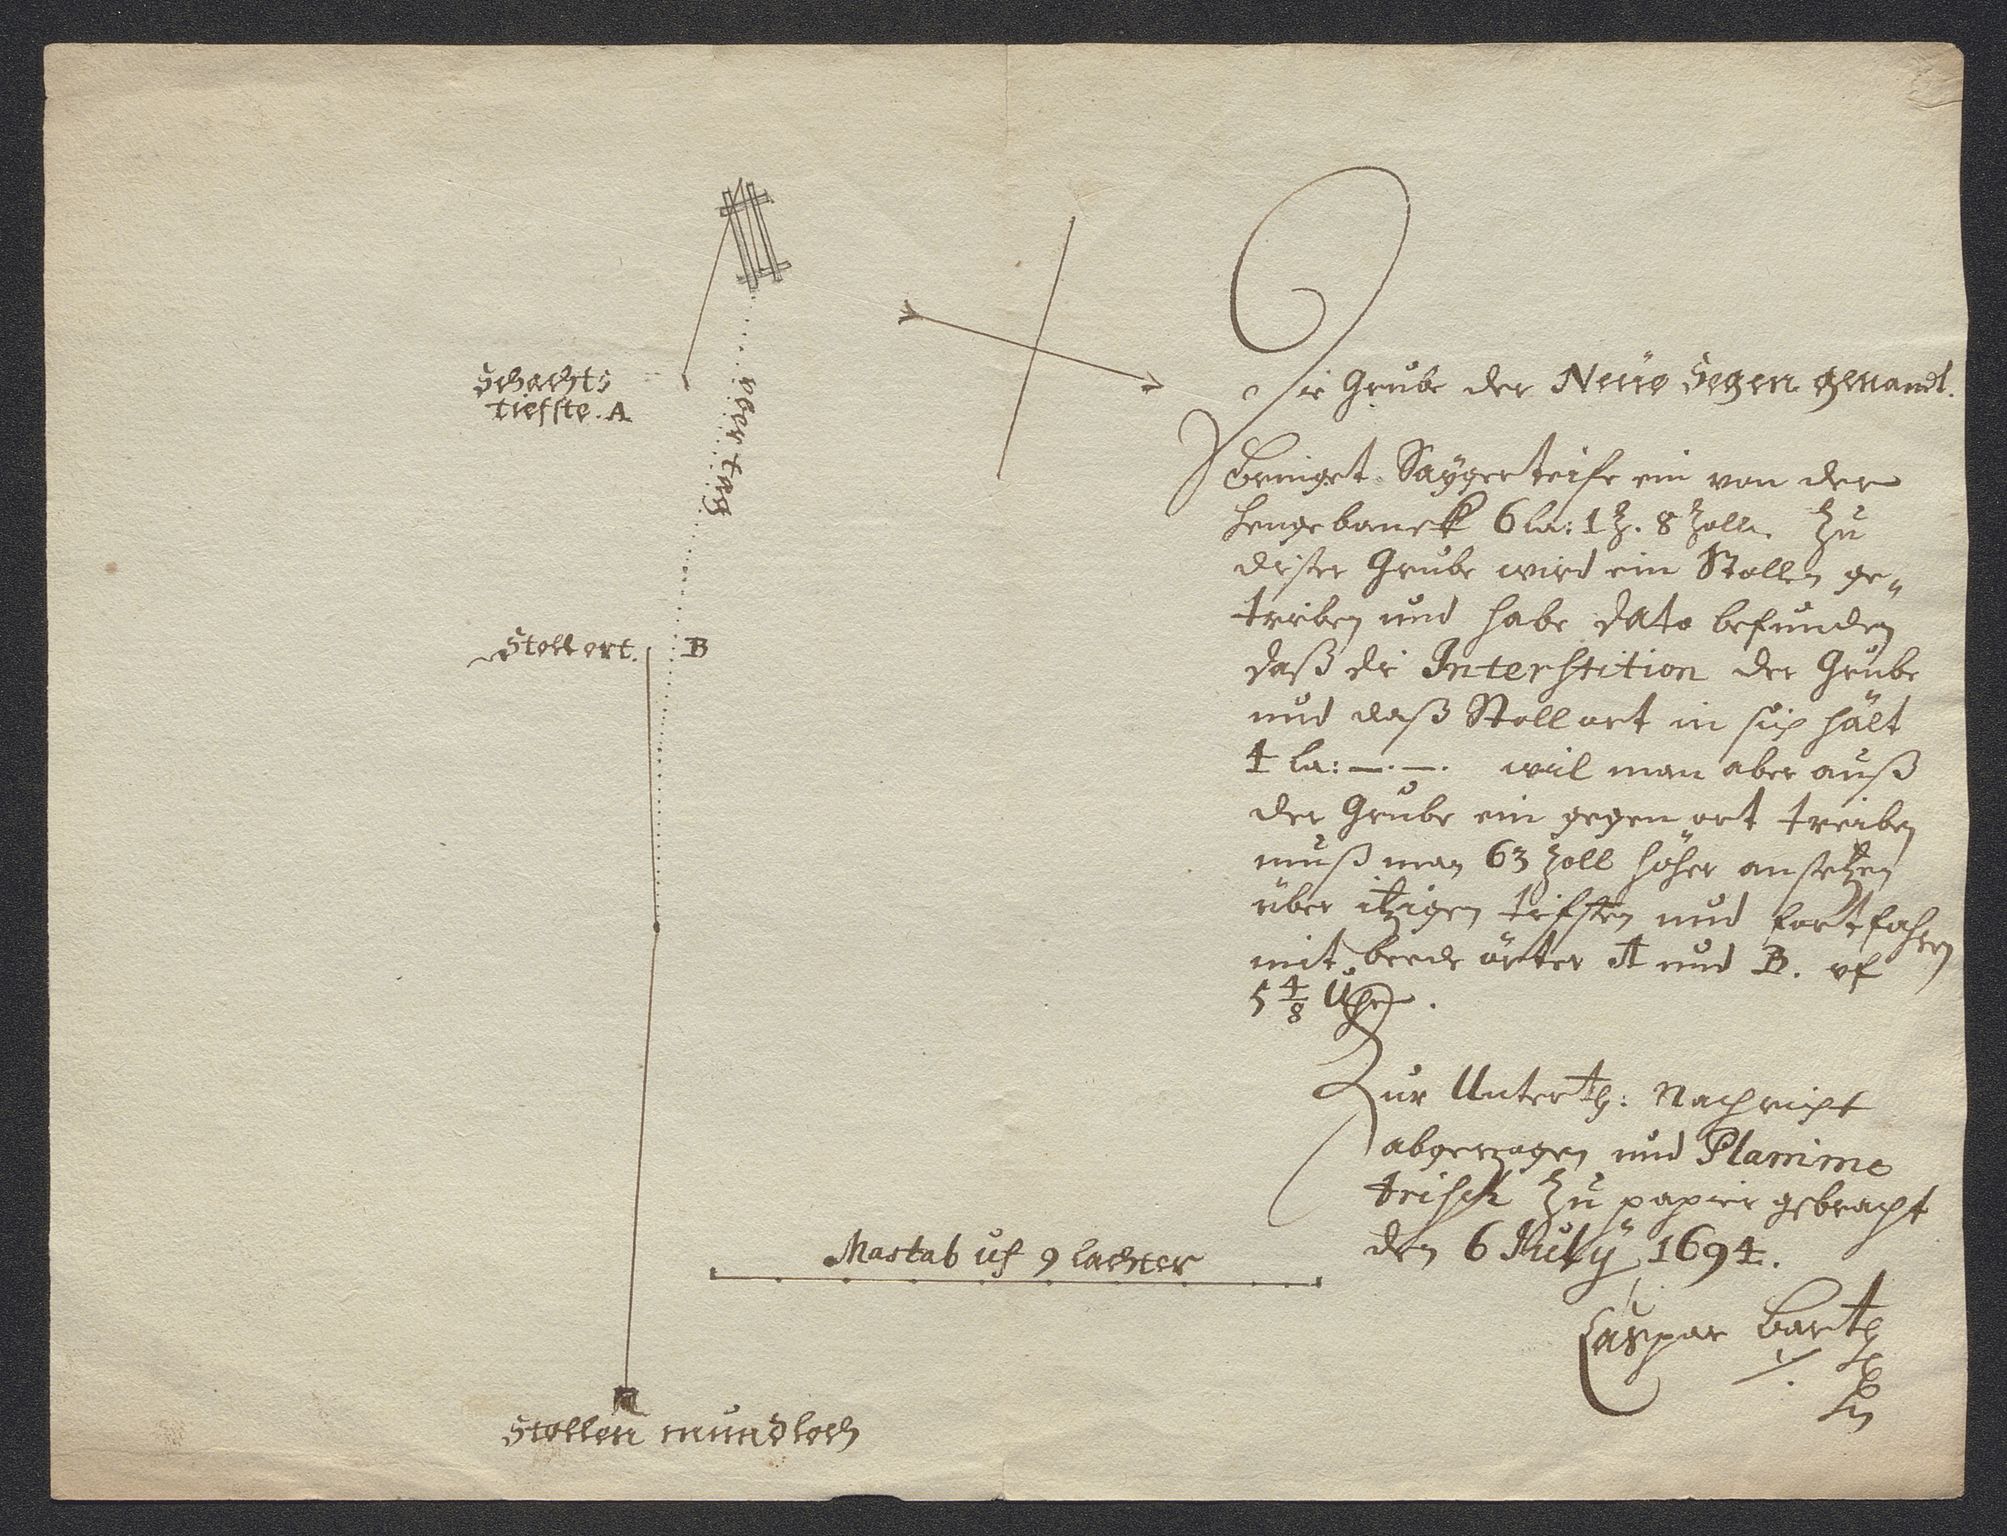 Schachts
tiefste. A
vber tag
Stoll ort. B
Stollen mundloch
Mastab uf 9 lachter
Die Grube der Neüe Segen genandt.
Bringet Saÿgerteife ein von der
hengebanck 6 la: 1 z. 8 zoll. Zu
diser Grube wird ein Stollen ge-
triben und habe dato befunden
daß di Interstition der Grube
und daß Stollort in sich hält
4 la: —. —. wil man aber auß
der Grube ein gegen ort treiben
muß man 63 zoll höher ansetzen
über itzigen tifsten und fortfahren
mit beede örter A und B. vf
5 4/8 Uhr.
Zur Unterth: Nachricht
abgezogen und Planime
trisch zu papier gebracht
den 6 July 1694.
Caspar Barth